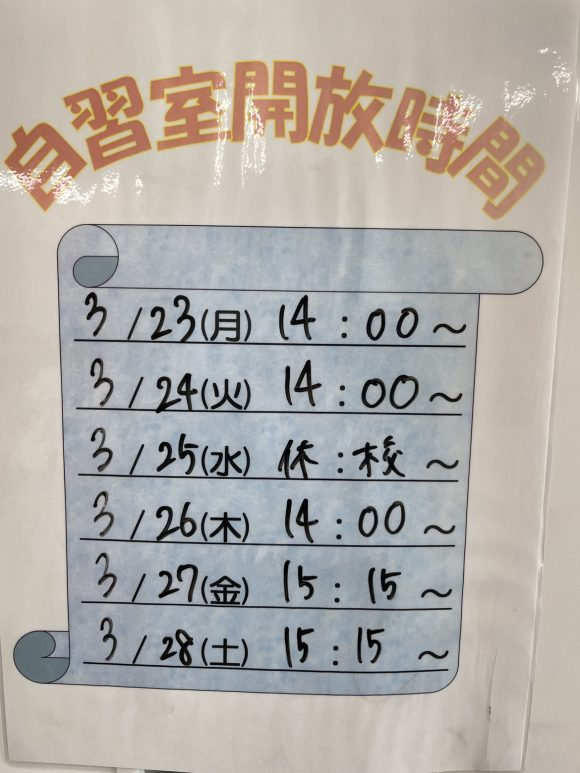 自習室開放時間
3/23(月) 14:00~
3/24(火) 14:00~
3/25(水) 休:校~
3/26(木) 14:00~
3/27(金) 15:15~
3/28(土) 15:15~